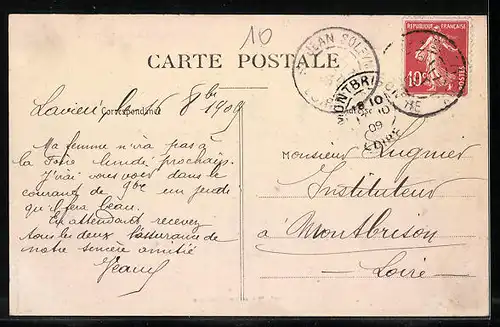 10
CARTE POSTALE
RÉPUBLIQUE FRANÇAISE
10
POSTES
ST JEAN SOLEYMIEUX
LOIRE
MONTBRISON
8 10
09
LOIRE
Correspondance
Lavieu le 8bre 1909
Ma femme n'ira pas à
la Foire lundi prochain.
J'irai vous voir dans le
courant de 9bre un jeudi
qu'il fera beau.
En attendant recevez
tous les deux l'assurance de
notre sincère amitié
Jean
Monsieur Lugnier
Instituteur
à Montbrison
Loire